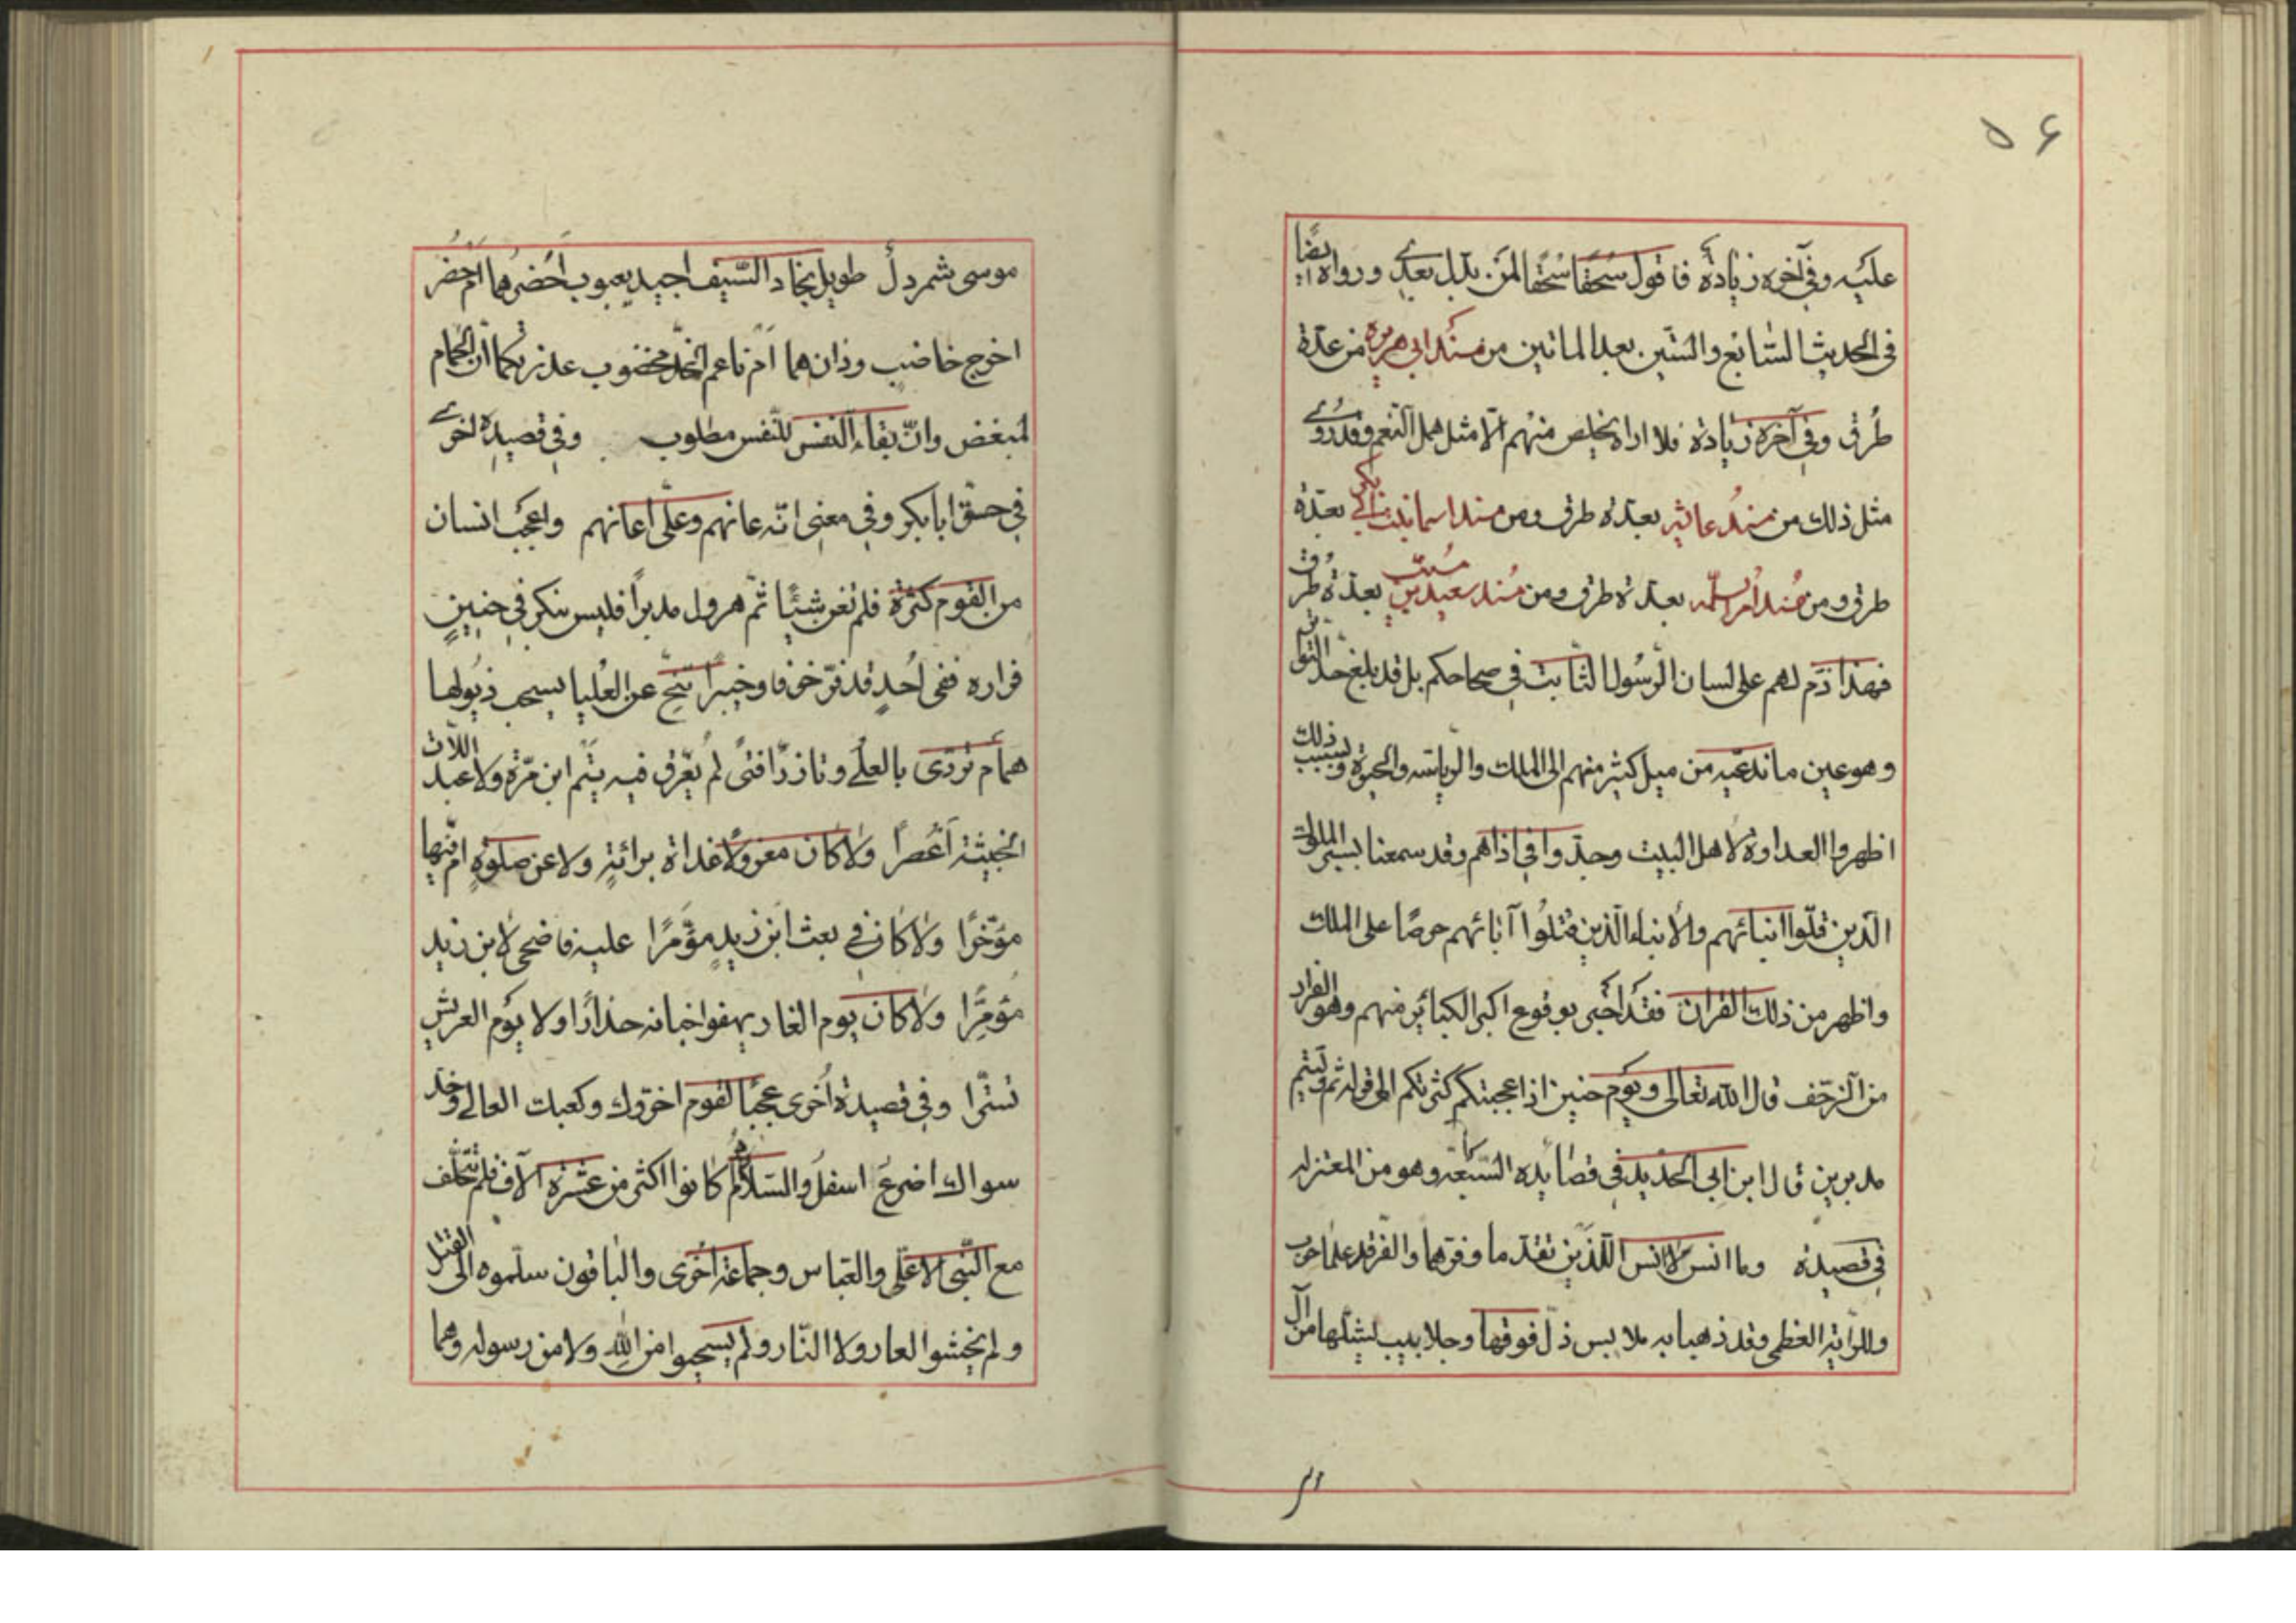 ۵۶
عليه وفي آخره زيادة فاقول سُحقًا سُحقًا لمن بدّل بعدي ورواه ايضًا
في الحديث السّابع والستّين بعد الماتين من مسند ابي هريرة من عدّة
طُرق وفي آخره زيادة فلا اراه يخلص منهم الّا مثل همل النّعم وقد روى
مثل ذلك من مسند عائشه بعدّة طرق ومن مسند اسما بنت ابي بكر بعدّة
طرق ومن مُسند اُمّ سلمه بعدّة طرق ومن مُسند سعيد بن مُسيّب بعدّة طُرق
فهذا ذمّ لهم على لسان الرّسول الثّابت في صحاحكم بل قد بلغ حدّ التواتر
وهو عين ما ندعيه من ميل كثير منهم الى الملك والرياسه والحيوة وبسبب ذلك
اظهروا العداوة لاهل البيت وجدّوا في اذاهم وقد سمعنا بسير الملوك
الّذين قتلوا ابنائهم والأبناء الّذين قتلوا آبائهم حرصًا على الملك
واظهر من ذلك القران فقد اخبر بوقوع اكبر الكبائر منهم وهو الفرار
من الزّحف قال الله تعالى ويوم حنين اذ اعجبتكم كثرتكم الى قوله ثم ولّيتم
مدبرين قال ابن ابي الحديد في قصائده السّبعة وهو من المعتزله
في قصيدة وما انس لا انس اللّذين تقدّما وفرّهما والفرّ قد علما حوب
وللرّاية العظمى وقد ذهبا به ملابس ذلّ فوقها وجلابيب يشلّهما من آل
موسى شمردل طويل نجاد السّيف اجيد يعبوب احَضرُهما امْ حُضر
اخرج خاضب وذان هما امْ ناعم الخدّ مخضوب عذرتكما ان الحمام
لمبغض وانّ بقاء النفس للنّفس مطلوب وفي قصيدة اخرى
في حقّ ابا بكر وفي معنى انّه عانهم وعلّى اعانهم واعجب انسان
من القوم كثرة فلم تغن شيئًا ثمّ هرول مدبرًا فليس بنكر في حنينٍ
فراره ففي اُحدٍ قد فرّ خوفا وخيبرا تنحّ عن العُليا يسحب ذيولها
همام تردّى بالعلى وتازرا فتًى لم يعّرق فيه تيّم ابن مرّة ولا عبد اللّات
الخبيثة اعصرًا ولا كان معزولًا غداة برائةٍ ولا عن صلوةٍ امّ فيها
مؤخّرًا ولا كان في بعث ابن زيدٍ مؤمّرًا عليه فاضحى لابن زيد
مؤمّرًا ولا كان يوم الغار يهفوا جنانه حذارًا ولا يوم العريش
تستّرا وفي قصيدة اُخرى عجبًا لقوم اخرّوك وكعبك العالي وخدّ
سواك اضرع اسفل والسّلام كانوا اكثر من عشرة آلاف فلم يتخلّف
مع النّبي الّا علي والعبّاس وجماعة اُخرى والباقون سلّموه الى القتل
ولم يخشوا العار ولا النّار ولم يستحيوا من اللهِ ولا من رسوله وهما